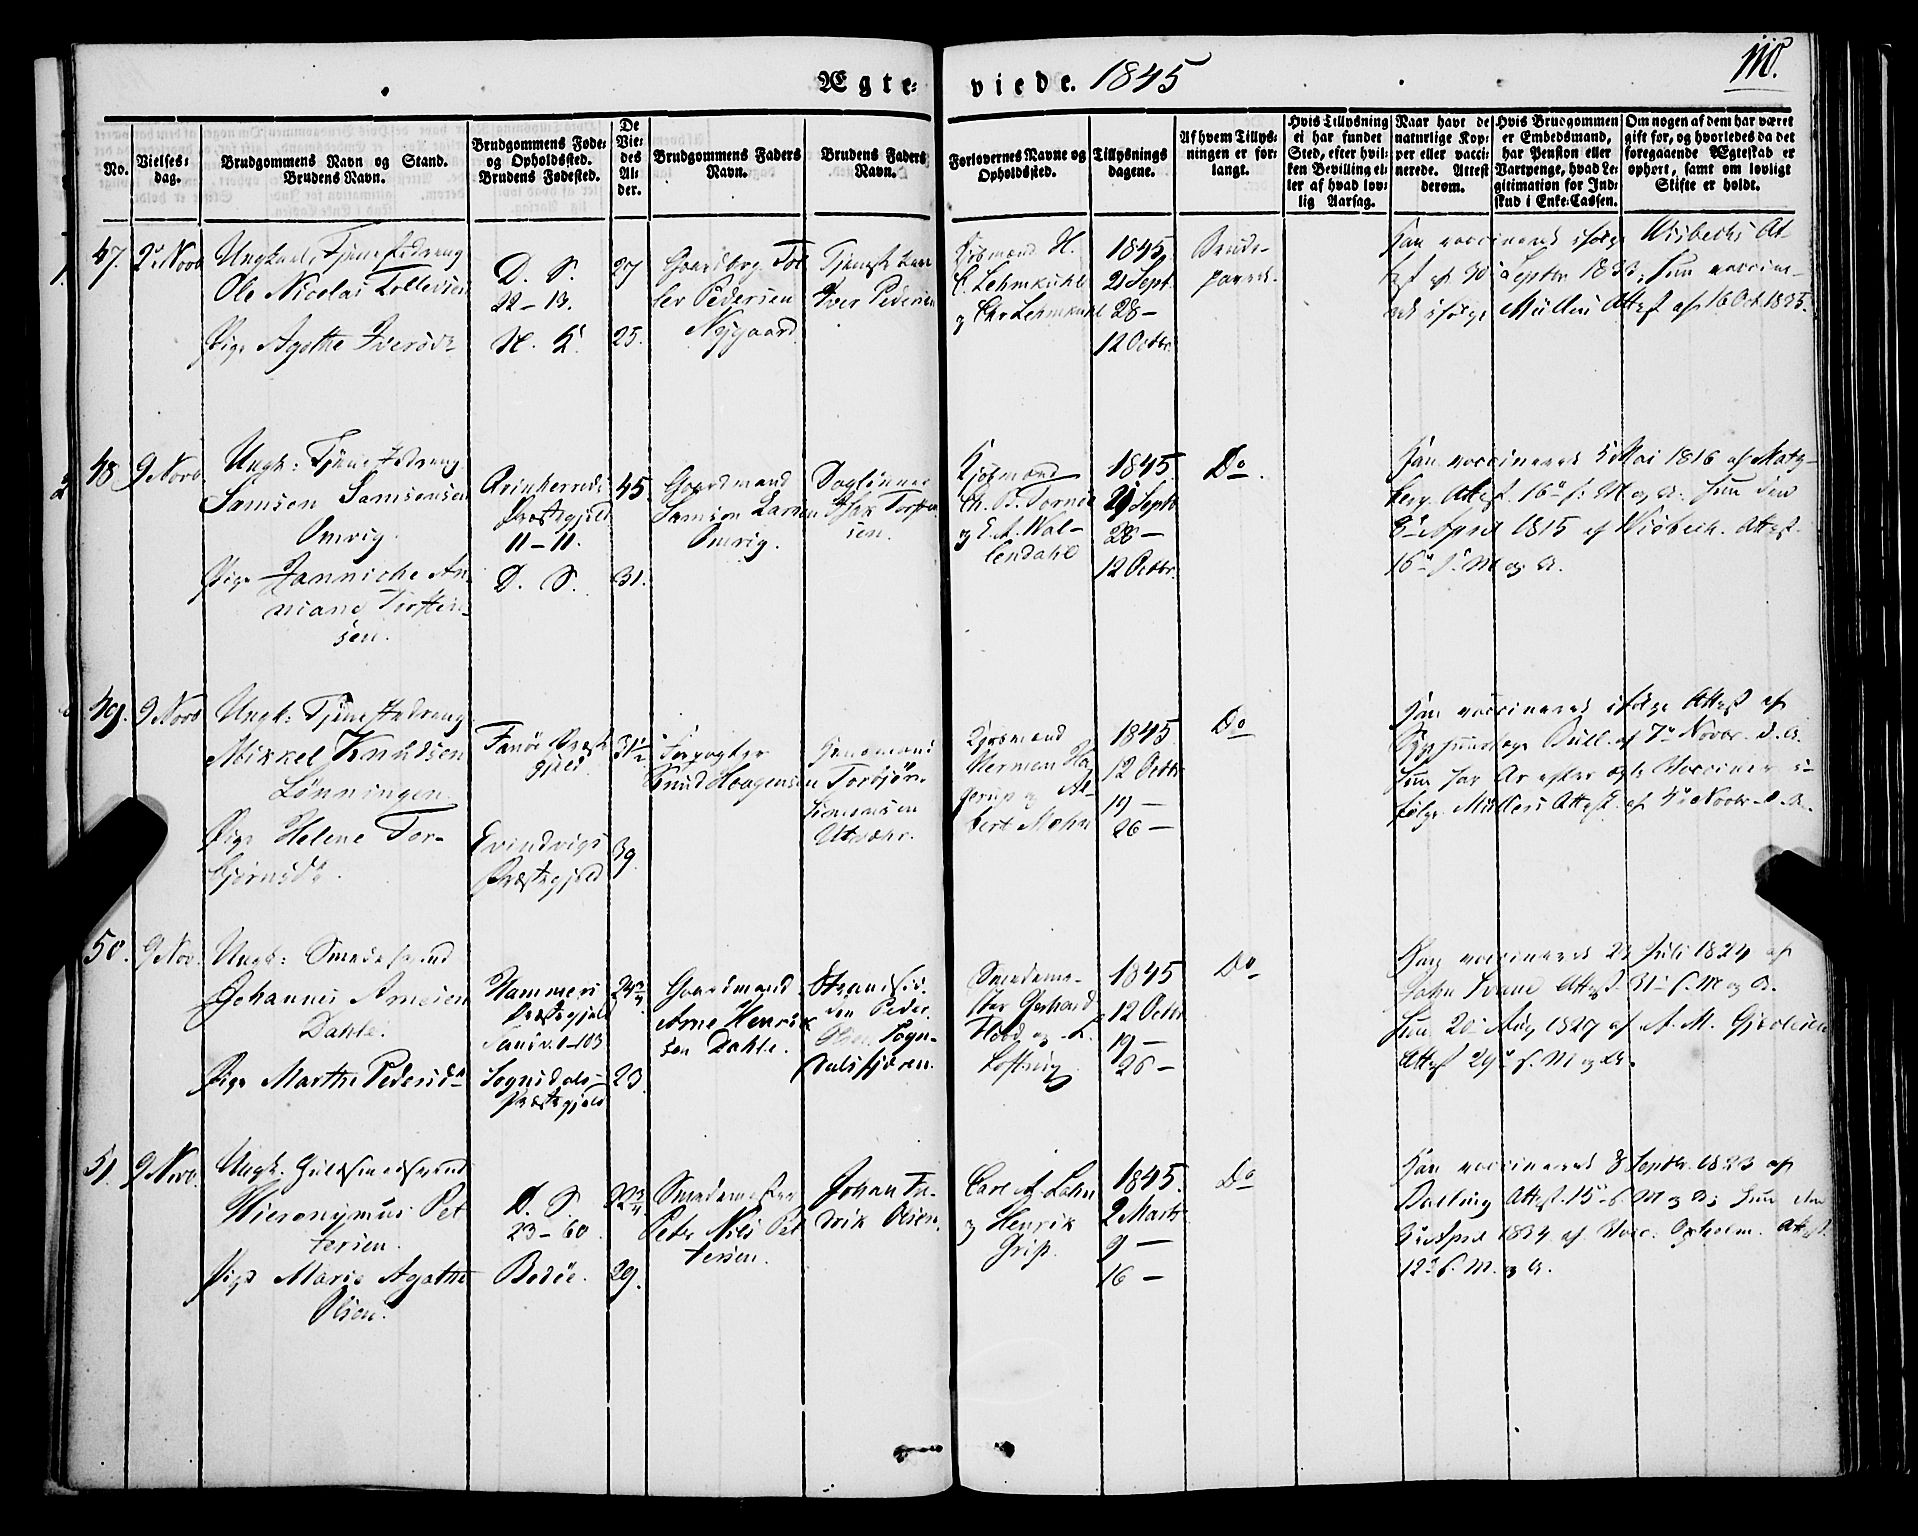 110.
Ægte- viede. 1845
No.
Vielses-
dag.
Brudgommens Navn og Stand.
Brudens Navn.
Brudgommens Føde-
og Opholdssted.
Brudens Fødested.
De
Vie-
des
Al-
der.
Brudgommens Faders
Navn.
Brudens Faders
Navn.
Forlovernes Navne og
Opholdssted.
Tillysnings
dagene.
Af hvem Tillys-
ningen er for-
langt.
Hvis Tillysning
ei har fundet
Sted, efter hvil-
ken Bevilling el-
ler af hvad lov-
lig Aarsag.
Naar havt de
naturlige Kop-
per eller vacci-
nerede. Attest
derom.
Hvis Brudgommen
er Embedsmand,
har Pension eller
Vartpenge, hvad Le-
gitimation for Ind-
skud i Enke-Cassen.
Om nogen af dem har været
gift før, og hvorledes da det
foregaaende Ægteskab er
ophørt, samt om lovligt
Skifte er holdt.
47.
2 Novb
Ungkarl, Tjenestedreng
Ole Nicolai Tollevsen
Pige Agathe Iversd
D. S.
22-13.
N. K.
27
25.
Gaardbrg. Tol
lev Pedersen
Nygaard
Iver Pedersen
H.
C. Lehmkuhl
og Chr Lehmkuhl
1845
21 Sept.
28 -
12 Octbr.
Brude-
parret.
Han vaccineret ifølge Wisbechs At
test af 30 Septbr 1833; Hun vaccine-
ret ifølge Müllers Attest af 16 Oct. 1835.
48
9 Novb
Ungk: Tjenestedreng
Samson Samsonsen
Omvig.
Pige Janniche An
niane Torsten-
sen.
Qvinherreds
Præstegjeld
11-11.
D. S.
45.
31.
Gaardmand
Samson Larsen
Omvig.
Daglønner
Torsten
sen.
Kjøbmænd
og E. A. Wal-
lendahl
1845
21 Septb
28 -
12 Octbr.
Do.
Han vaccineret 5 Mai 1816 af
Attest 16 f. M og A. Hun den
April 1815 af Wisbech. Attest
16 f. M og A.
49.
9 Novb
Ungk: Tjenestedreng
Mikkel Knudsen
Lønningen.
Pige Helene Tor-
bjørnsd.
Fanøe Præste
gjeld.
Evindvigs
Præstegjeld
31 1/2
39.
Knud Haagensen
Torbjørn
Simonsen
Herman Ha
gerup og Al
bert Mohn
1845
12 Octbr
19 -
26 -
Do
Han vaccineret ifølge Attest af
Bull af 7 Novbr. d. A.
Hun har Ar efter ægte Vacciner i-
følge Müllers Attest af Novbr d. A.
50.
9 Nov.
Ungk: Smedesvend
Johannes Arnesen
Dahle.
Pige Marthe Pedersd
Hammers
Præstegjeld
103
Sogndals-
Præstegjeld
24 3/4
23.
Gaardmand
Arne Henrik
sen Dahle.
Strandsid
den Peder
Sogn-
dalsfjæren.
Smedeme-
ster Gerhard
og
Loftnig
1845
12 Octbr
19 -
26 -
Do
Han vaccineret 22 Juli 1824 af
John Attest 31 f. M og A.
Hun 20 Aug 1827 af A. M.
Attest 29 f. M og A.
51.
9 Novb.
Ungk. Guldsmedsvend
Hieronymus Pet
tersen.
Pige Marie Agathe
Olsen.
D. S.
23-60
Bodøe.
22 3/4
29.
Smedemester
Peter Nils Pet
tersen.
Johan Fri-
drik Olsen.
Carl A. Lohn
og Henrik
Grip.
1845.
2 Marts
9 -
16 -
Do
Han vaccineret 8 Septbr. 1823 af
Attest 15 f. M og A; Hun den
April 1834 af Vacc. Oxholm. Attest
12 f. M. og A.